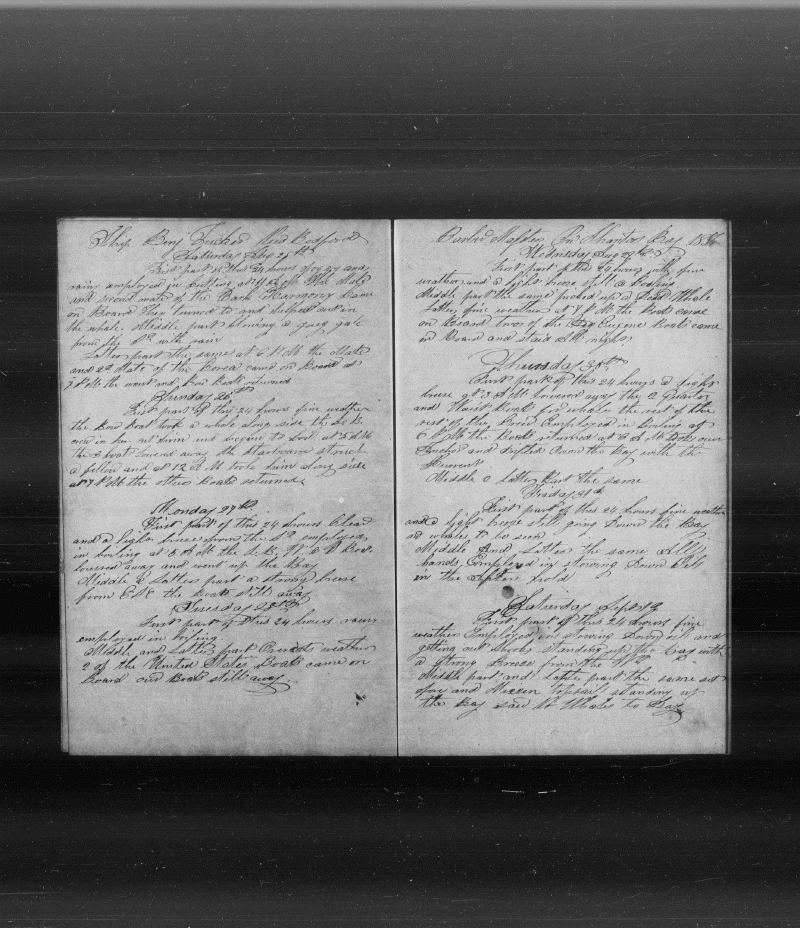 Ship Benj Tucker New Bedford
Saturday Aug 25th
First part of this 24 hours foggy and
rainy employed in boiling at 4 P M the Mate
and second mate of the Bark Harmony came
on Board they turned to and helped cut in
the whale. Middle part blowing a gale
from the Sd with rain
Latter part the same at 6 P M the Mate
and 2d Mate of the Corea came on Board at
the waist and Bow Boats returned
Sunday 26th
First part of this 24 hours fine weather
the Bow Boat took a whale along side the L B
one in her cut him in and begun to boil at 5 A M
the 3 boat lowered away the Starboard struck
a fellow and at 12 A M took him along side
at 7 P M the other Boats returned
Monday 27th
First part of this 24 hours Clear
and a light breeze from the Sd employed
in boiling at 8 A M the L. B, W. B B Boat
lowered away and went up the Bay
Middle & Latter part a strong breeze
from the Boats still away
Tuesday 28th
First part of this 24 hours rainy
employed in boiling
Middle and Latter part weather
2 of the United States Boats came on
Board our Boats still away
Bay 18
Wednesday Aug 29th
First part of this 24 hours fine
weather and a light breeze still a boiling
Middle part the same picked up a Dead Whale
Latter fine weather at 7 P M the Boats came
on Board two of the Eugene Boats came
on Board and Staid All night
Thursday 30th
First part of this 24 hours a light
breeze at 3 A M lowered away the 2 Quarter
and Waist Boats for whale the rest of the
rest of the Crew Employed in boiling at
6 P M the Boats returned at 8 A M
Anchor and drifted Down the Bay with the
Current
Middle & Latter Part the same
Friday 31st
First part of this 24 hours fine weather
and a light breeze still going Down the Bay
no whales to be seen
Middle And Latter the same All
hands Employed in stowing Down Oil
in the after hold
Saturday Sept 1st
First part of this 24 hours fine
weather Employed in stowing Down oil and
getting out shooks standing up the Bay with
a strong breeze from the Wd
Middle part and Latter part the same set
fore and Mizzen topsail standing up
the Bay saw No Whales to Day